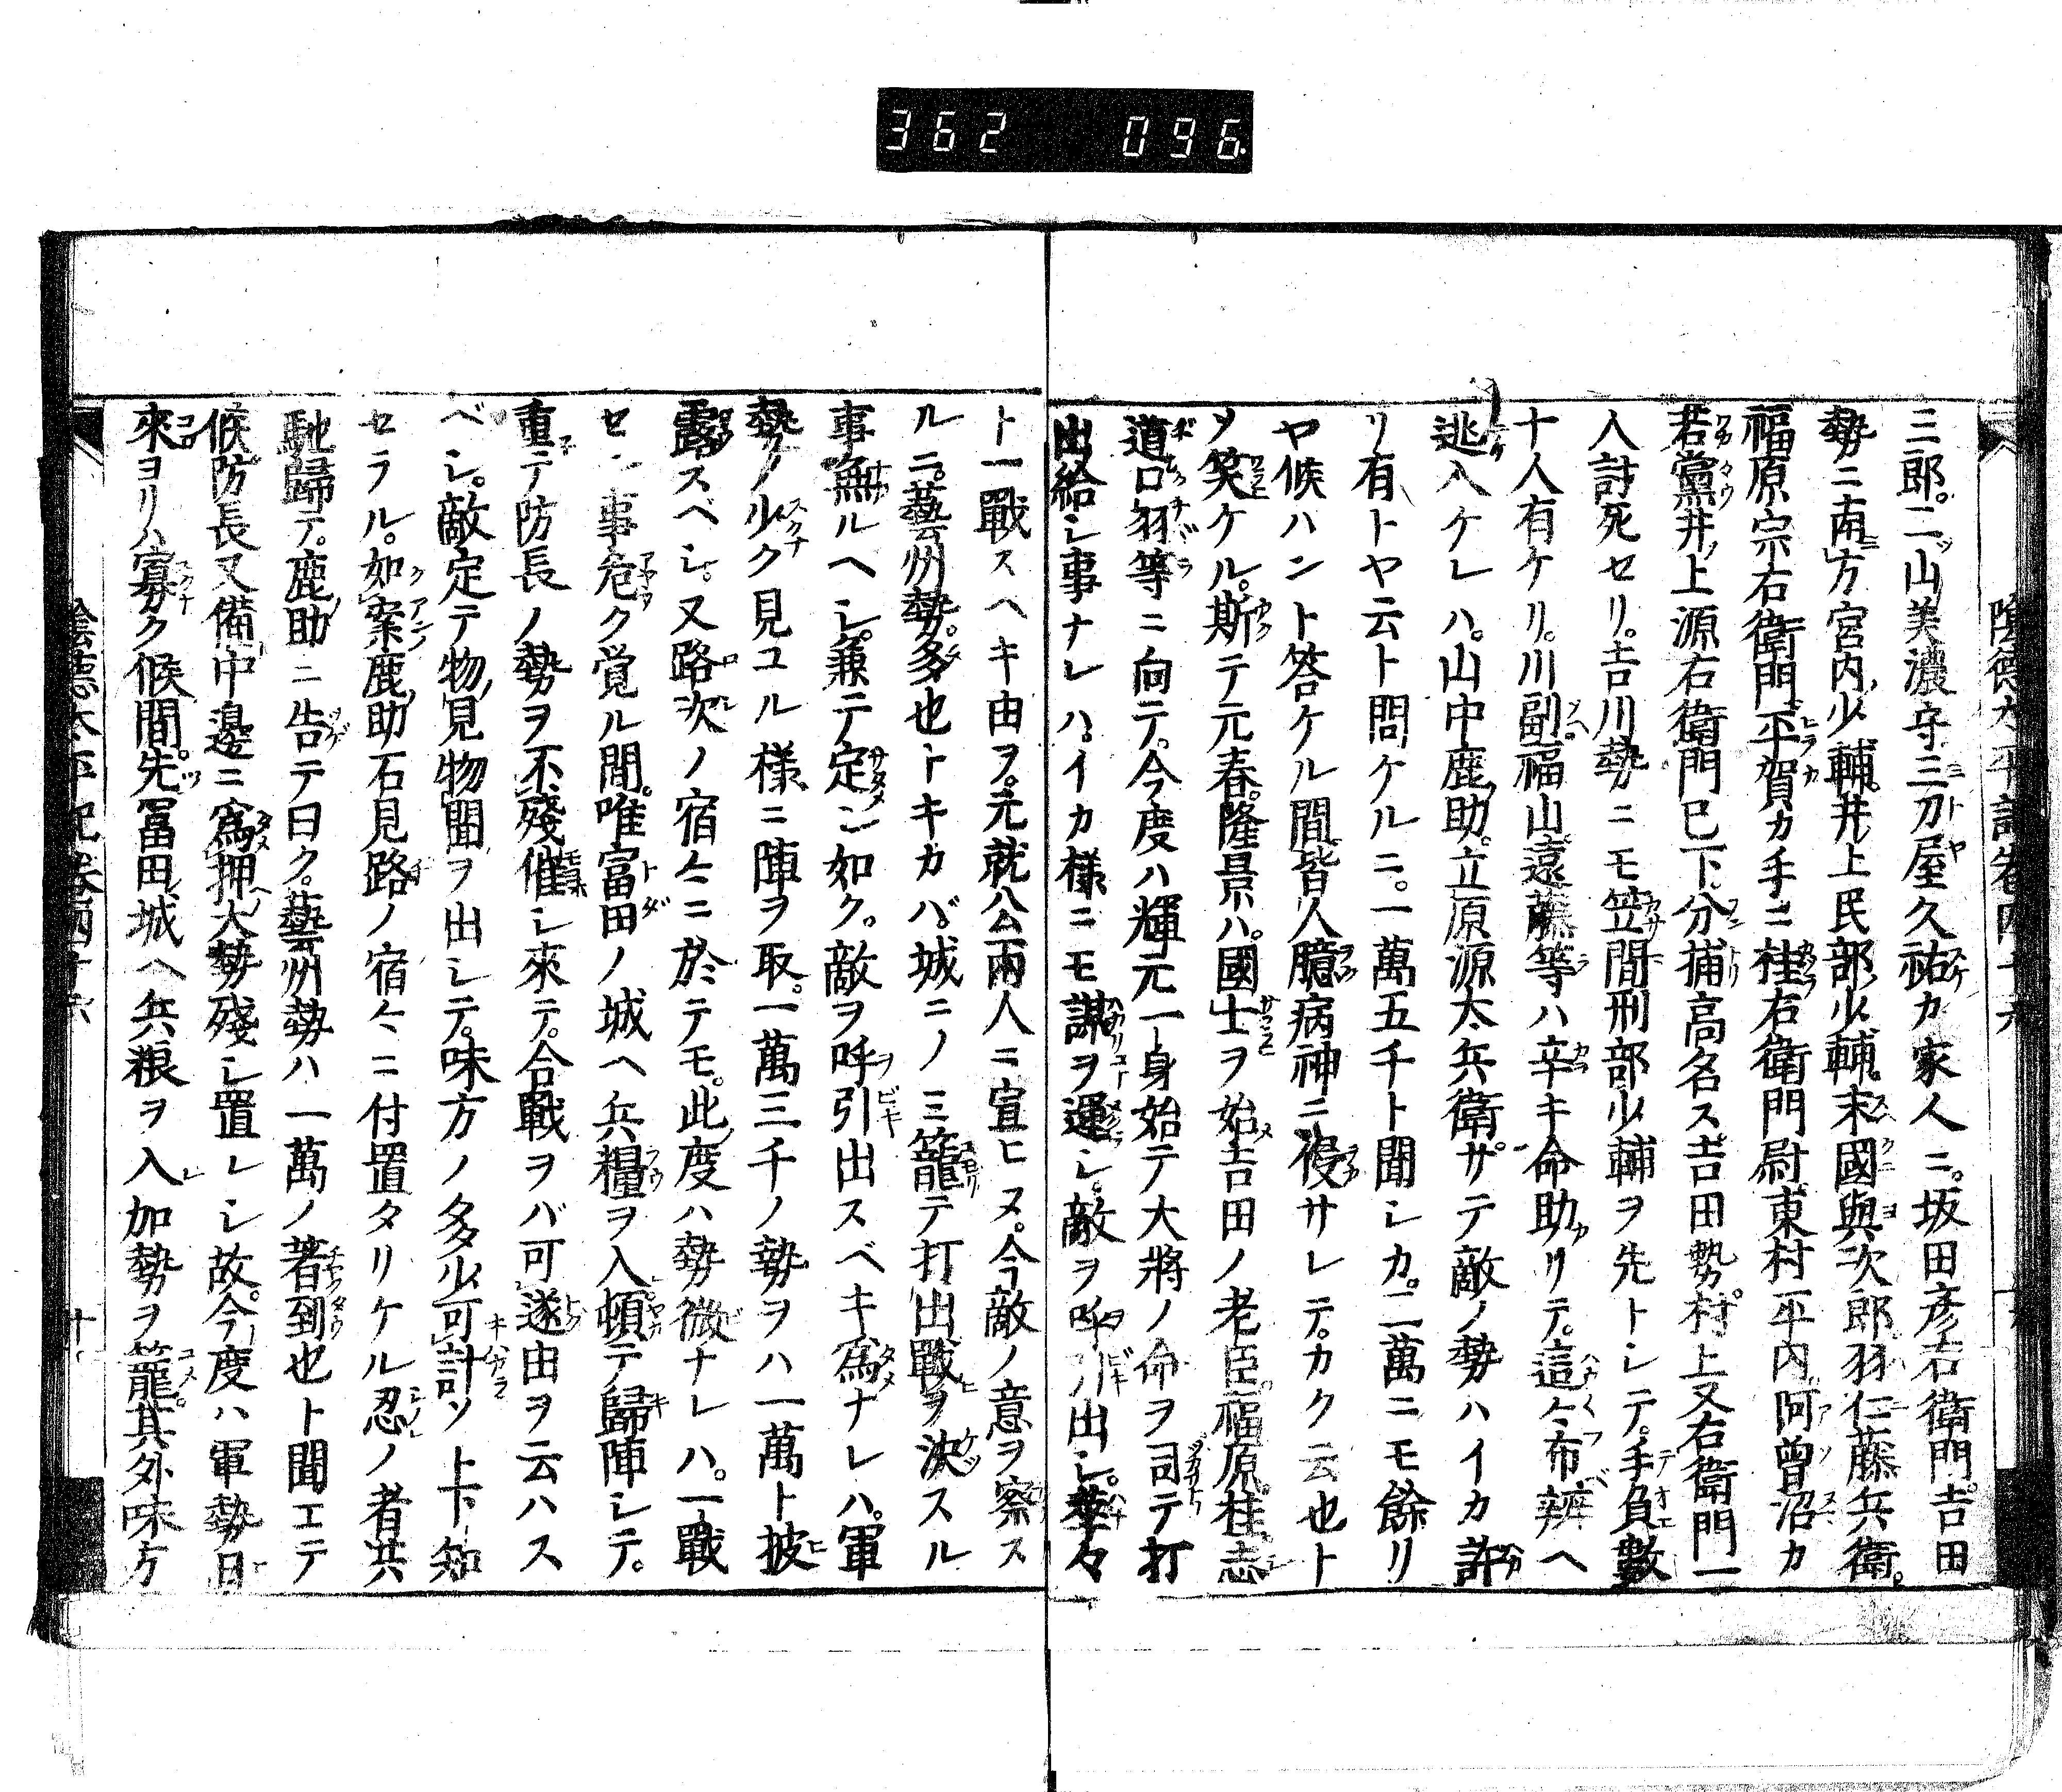 362 096
三郎。二山美濃守三刀屋久祐カ家人ニ。坂田彦右衛門。吉田
勢ニ南方宮内少輔。井上民部少輔。末國與次郎羽仁藤兵衛。
福原宗右衛門。平賀カ手ニ桂右衛門尉東村平内阿曽沼カ
若黨井上源右衛門已下分捕高名ス吉田勢。村上又右衛門一
入討死セリ。吉川勢ニモ笠間刑部少輔ヲ先トシテ。手負數
十人有ケリ。川副。福山遠藤等ハ辛キ命助リテ。這々布辨ヘ
逃入ケレハ。山中鹿助。立原源太兵衛。サテ敵ノ勢ハイカ許
リ有トヤ云ト問ケルニ。一萬五千ト聞シカ。二萬ニモ餘リ
ヤ候ハント答ケル間。皆人臆病神ニ侵サレテ。カク云也ト
ヲ笑ケル。斯テ元春。隆景ハ。國士ヲ始吉田ノ老臣。福原。桂。志
道口羽等ニ向テ。今度ハ輝元一身始テ大將ノ命ヲ司テ打
出給シ事ナレハ。イカ様ニモ謀ヲ運シ。敵ヲ呼引出シ。華々
ト一戰スヘキ由ヲ。元就公兩人ニ宣ヒヌ。今敵ノ意ヲ察ス
ルニ。藝州勢。多也トキカバ。城ニノミ籠テ打出戰ヲ決スル
事無ルヘシ。兼テ定ン如ク。敵ヲ呼引出スベキ爲ナレハ。軍
勢ノ少ク見ユル様ニ陣ヲ取。一萬三千ノ勢ヲハ一萬ト披
露スベシ。又路次ノ宿々ニ於テモ。此度ハ勢微ナレハ。一戰
セン事危ク覚ル間。唯富田ノ城ヘ兵糧ヲ入。頓テ歸陣シテ。
重テ防長ノ勢ヲ不殘催シ來テ。合戰ヲバ可遂由ヲ云ハス
ベシ。敵定テ物見物聞ヲ出シテ。味方ノ多少可計ソト下知
セラル。如案鹿助石見路ノ宿々ニ付置タリケル忍ノ者共
馳歸テ。鹿助ニ告テ曰ク。藝州勢ハ一萬ノ著到也ト聞エテ
候防長又備中邊ニ爲押大勢殘シ置レシ故。今度ハ軍勢日
來ヨリハ寡ク候間。先冨田城ヘ兵粮ヲ入加勢ヲ籠。其外味方